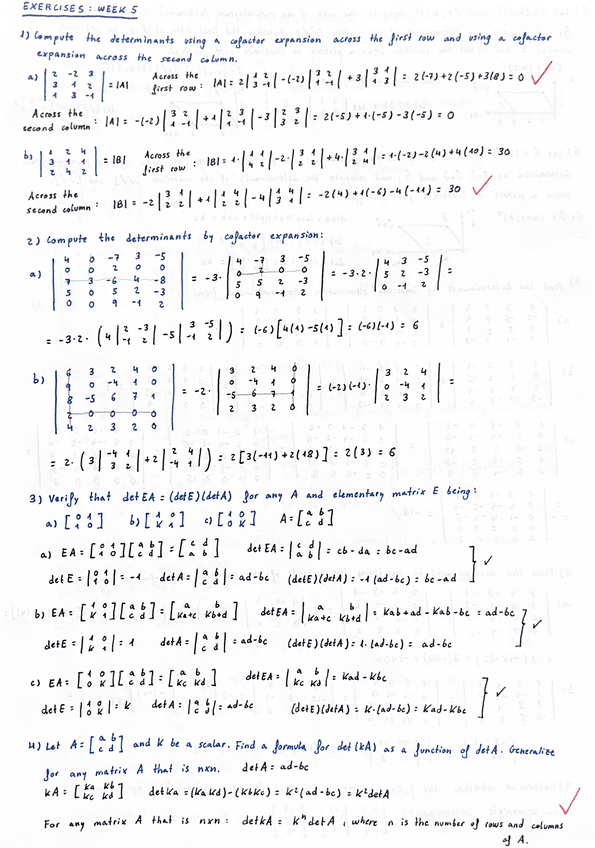 EXERCISES: WEEK 5
1) Compute the determinants using a cofactor expansion across the first row and using a cofactor
expansion across the second column.
a) | 2 -2 3 ; 3 1 2 ; 1 3 -1 | = |A|   Across the first row: |A| = 2| 1 2 ; 3 -1 | -(-2)| 3 2 ; 1 -1 | + 3| 3 1 ; 1 3 | = 2(-7)+2(-5)+3(8) = 0 ✓
Across the second column: |A| = -(-2)| 3 2 ; 1 -1 | + 1| 2 3 ; 1 -1 | - 3| 2 3 ; 3 2 | = 2(-5)+1·(-5)-3(-5) = 0
b) | 1 2 4 ; 3 1 1 ; 2 4 2 | = |B|   Across the first row: |B| = 1·| 1 1 ; 4 2 | - 2·| 3 1 ; 2 2 | + 4·| 3 1 ; 2 4 | = 1·(-2)-2(4)+4(10) = 30
Across the second column: |B| = -2| 3 1 ; 2 2 | + 1| 1 4 ; 2 2 | - 4| 1 4 ; 3 1 | = -2(4)+1(-6)-4(-11) = 30 ✓
2) Compute the determinants by cofactor expansion:
a) | 4 0 -7 3 -5 ; 0 0 2 0 0 ; 7 3 -6 4 -8 ; 5 0 5 2 -3 ; 0 0 9 -1 2 | = -3·| 4 -7 3 -5 ; 0 2 0 0 ; 5 5 2 -3 ; 0 9 -1 2 | = -3·2·| 4 3 -5 ; 5 2 -3 ; 0 -1 2 | =
= -3·2·(4| 2 -3 ; -1 2 | - 5| 3 -5 ; -1 2 |) = (-6)[4(1)-5(1)] = (-6)(-1) = 6
b) | 6 3 2 4 0 ; 9 0 -4 1 0 ; 8 -5 6 7 1 ; 2 0 0 0 0 ; 4 2 3 2 0 | = -2·| 3 2 4 0 ; 0 -4 1 0 ; -5 6 7 1 ; 2 3 2 0 | = (-2)(-1)·| 3 2 4 ; 0 -4 1 ; 2 3 2 | =
= 2·(3| -4 1 ; 3 2 | + 2| 2 4 ; -4 1 |) = 2[3(-11)+2(18)] = 2(3) = 6
3) Verify that det EA = (det E)(det A) for any A and elementary matrix E being:
a) [ 0 1 ; 1 0 ]   b) [ 1 0 ; K 1 ]   c) [ 1 0 ; 0 K ]   A = [ a b ; c d ]
a) EA = [ 0 1 ; 1 0 ][ a b ; c d ] = [ c d ; a b ]   det EA = | c d ; a b | = cb - da = bc - ad
det E = | 0 1 ; 1 0 | = -1   det A = | a b ; c d | = ad-bc   (det E)(det A) = -1(ad-bc) = bc-ad ✓
b) EA = [ 1 0 ; K 1 ][ a b ; c d ] = [ a b ; Ka+c Kb+d ]   det EA = | a b ; Ka+c Kb+d | = Kab+ad-Kab-bc = ad-bc
det E = | 1 0 ; K 1 | = 1   det A = | a b ; c d | = ad-bc   (det E)(det A) = 1·(ad-bc) = ad-bc ✓
c) EA = [ 1 0 ; 0 K ][ a b ; c d ] = [ a b ; Kc Kd ]   det EA = | a b ; Kc Kd | = Kad - Kbc
det E = | 1 0 ; 0 K | = K   det A = | a b ; c d | = ad-bc   (det E)(det A) = K·(ad-bc) = Kad-Kbc ✓
4) Let A = [ a b ; c d ] and K be a scalar. Find a formula for det(KA) as a function of det A. Generalize
for any matrix A that is nxn.   det A = ad-bc
KA = [ Ka Kb ; Kc Kd ]   det Ka = (Ka Kd) - (Kb Kc) = K²(ad-bc) = K² det A
For any matrix A that is nxn: det KA = Kⁿ det A, where n is the number of rows and columns ✓
of A.